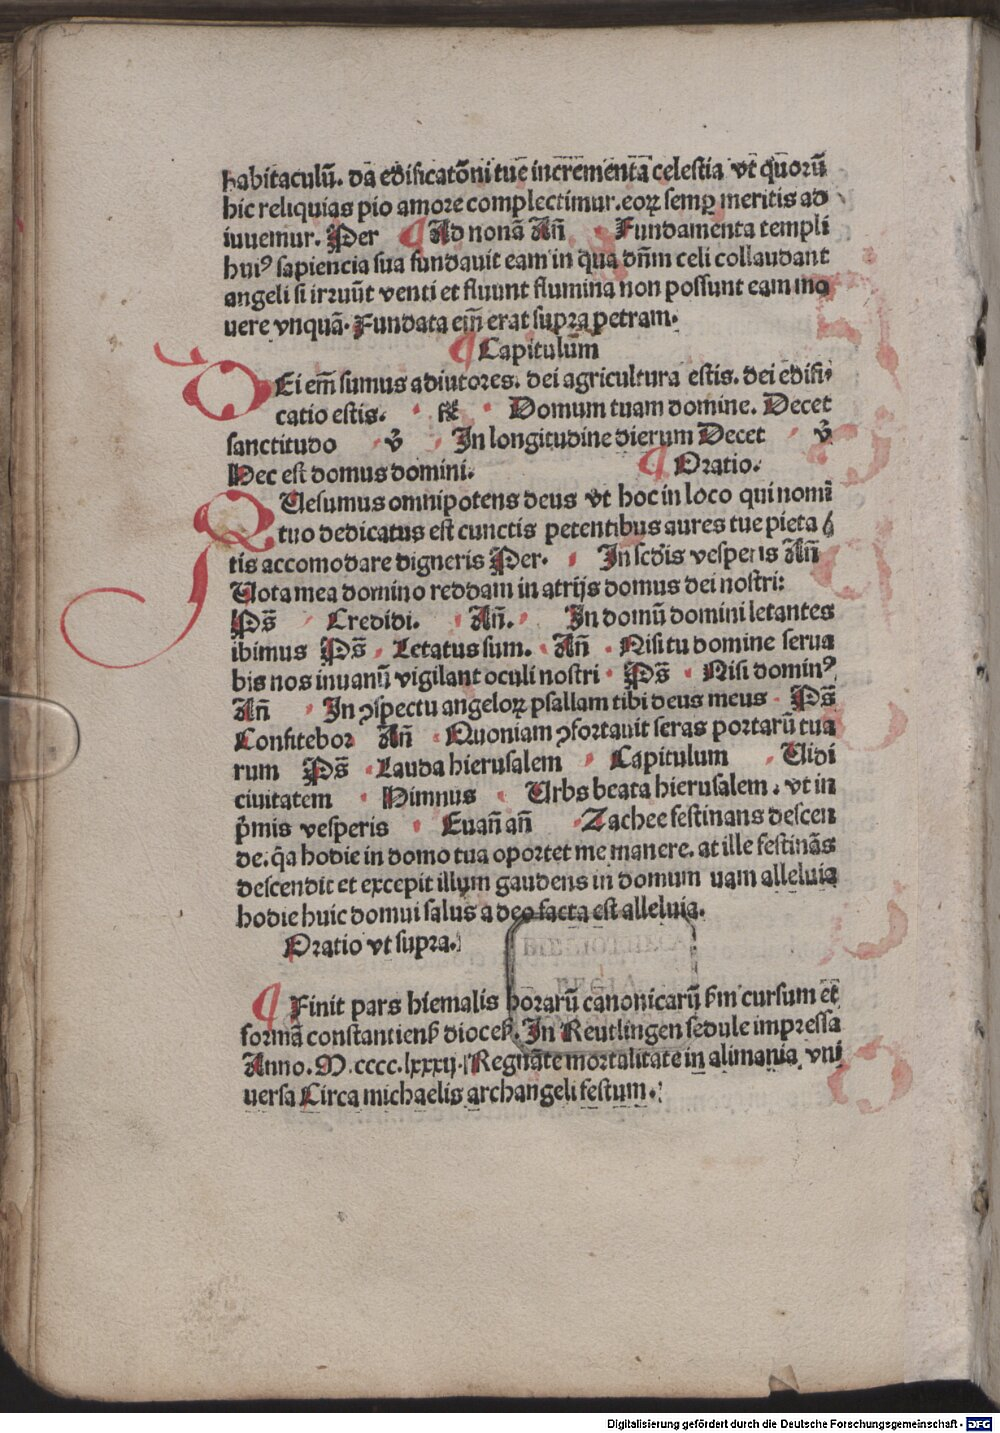 habitaculū. da edificatōni tue incrementa celestia vt quorū
hic reliquias pio amore complectimur. eoꝝ semꝑ meritis ad
iuuemur. Per ¶ Ad nonā Añ Fundamenta templi
huiꝰ sapiencia sua fundauit eam in qua dn̄m celi collaudant
angeli si irruūt venti et fluunt flumina non possunt eam mo
uere vnquā. Fundata em̄ erat supra petram.
¶ Capitulum
DEi em̄ sumus adiutores. dei agricultura estis. dei edifi
catio estis. ℟ Domum tuam domine. Decet
sanctitudo v̄ In longitudine dierum Decet v̄
Hec est domus domini. ¶ Oratio.
QUesumus omnipotens deus vt hoc in loco qui nomī
tuo dedicatus est cunctis petentibus aures tue pieta
tis accomodare digneris Per. In scd̄is vesperis Añ
Uota mea domino reddam in atrijs domus dei nostri:
Ps̄ Credidi. Añ. In domū domini letantes
ibimus Ps̄ Letatus sum. Añ Nisi tu domine serua
bis nos inuanū vigilant oculi nostri Ps̄ Nisi dominꝰ
Añ In ꝯspectu angeloꝝ psallam tibi deus meus Ps̄
Confitebor Añ Quoniam ꝯfortauit seras portarū tua
rum Ps̄ Lauda hierusalem Capitulum Uidi
ciuitatem Himnus Urbs beata hierusalem. vt in
p̄mis vesperis Euan̄ an̄ Zachee festinans descen
de. q̄a hodie in domo tua oportet me manere. at ille festinās
descendit et excepit illum gaudens in domum uam alleluia
hodie huic domui salus a deo facta est alleluia.
Oratio vt supra.
¶ Finit pars hiemalis horarū canonicarū ẜm cursum et
formā constantienẜ dioceẜ. In Reutlingen sedule impressa
Anno. M.cccc.lxxxij. Regnāte mortalitate in alimania vni
uersa Circa michaelis archangeli festum.
BIBLIOTHECA
REGIA
Digitalisierung gefördert durch die Deutsche Forschungsgemeinschaft - DFG